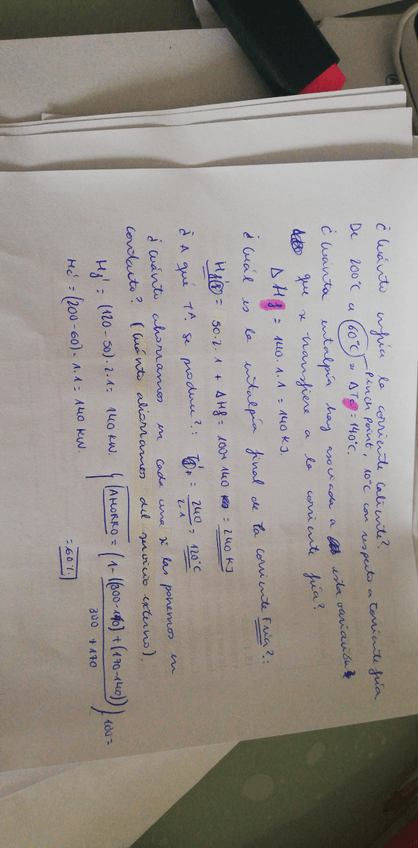 ¿Cuánto enfría la corriente caliente?
De 200°C a 60°C ⇒ ΔTc = 140°C.
Pinch Point, 10°C con respecto a corriente fría
¿Cuánta entalpía hay asociada a esta variación
que se transfiere a la corriente fría?
ΔHf = 140·1·1 = 140 kJ
¿Cuál es la entalpía final de la corriente fría?:
Hf' = 50·2·1 + ΔHf = 100+140 = 240 kJ
¿A qué Tª se produce?: Tf' = 240/2·1 = 120°C
¿Cuánto ahorramos en cada una si las ponemos en
contacto? (Cuánto ahorramos del servicio externo).
Hf' = (120-50)·2·1 = 140 kW.
Hc' = (200-60)·1·1 = 140 kW.
AHORRO = (1-((300-140)+(170-140))/300+170)·100=
= 60%